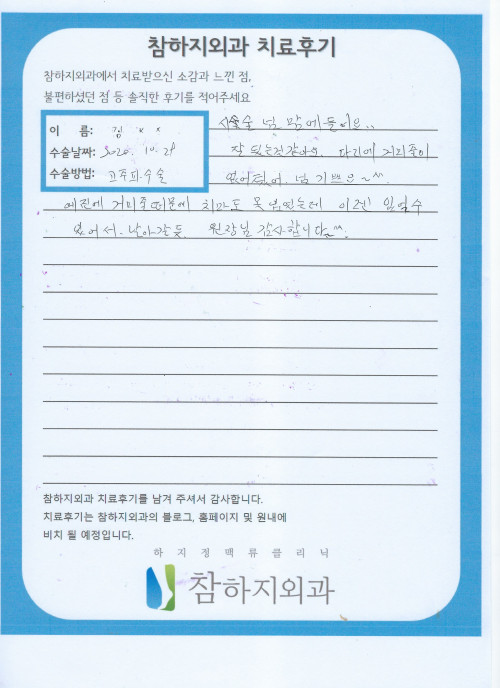 참하지외과 치료후기
참하지외과에서 치료받으신 소감과 느낀 점,
불편하셨던 점 등 솔직한 후기를 적어주세요
이 름: 김 x x
수술날짜: 2020. 10. 28
수술방법: 고주파수술
수술 넘 맘에들어요..
잘 됐는것같아요. 다리에 거미줄이
없어졌어. 넘 기쁘요~^^.
예전에 거미줄때문에 치마도 못입었는데 이젠 입을수
있어서. 날아갈듯. 원장님 감사합니다~^^.
참하지외과 치료후기를 남겨 주셔서 감사합니다.
치료후기는 참하지외과의 블로그, 홈페이지 및 원내에
비치 될 예정입니다.
하지정맥류클리닉
참하지외과